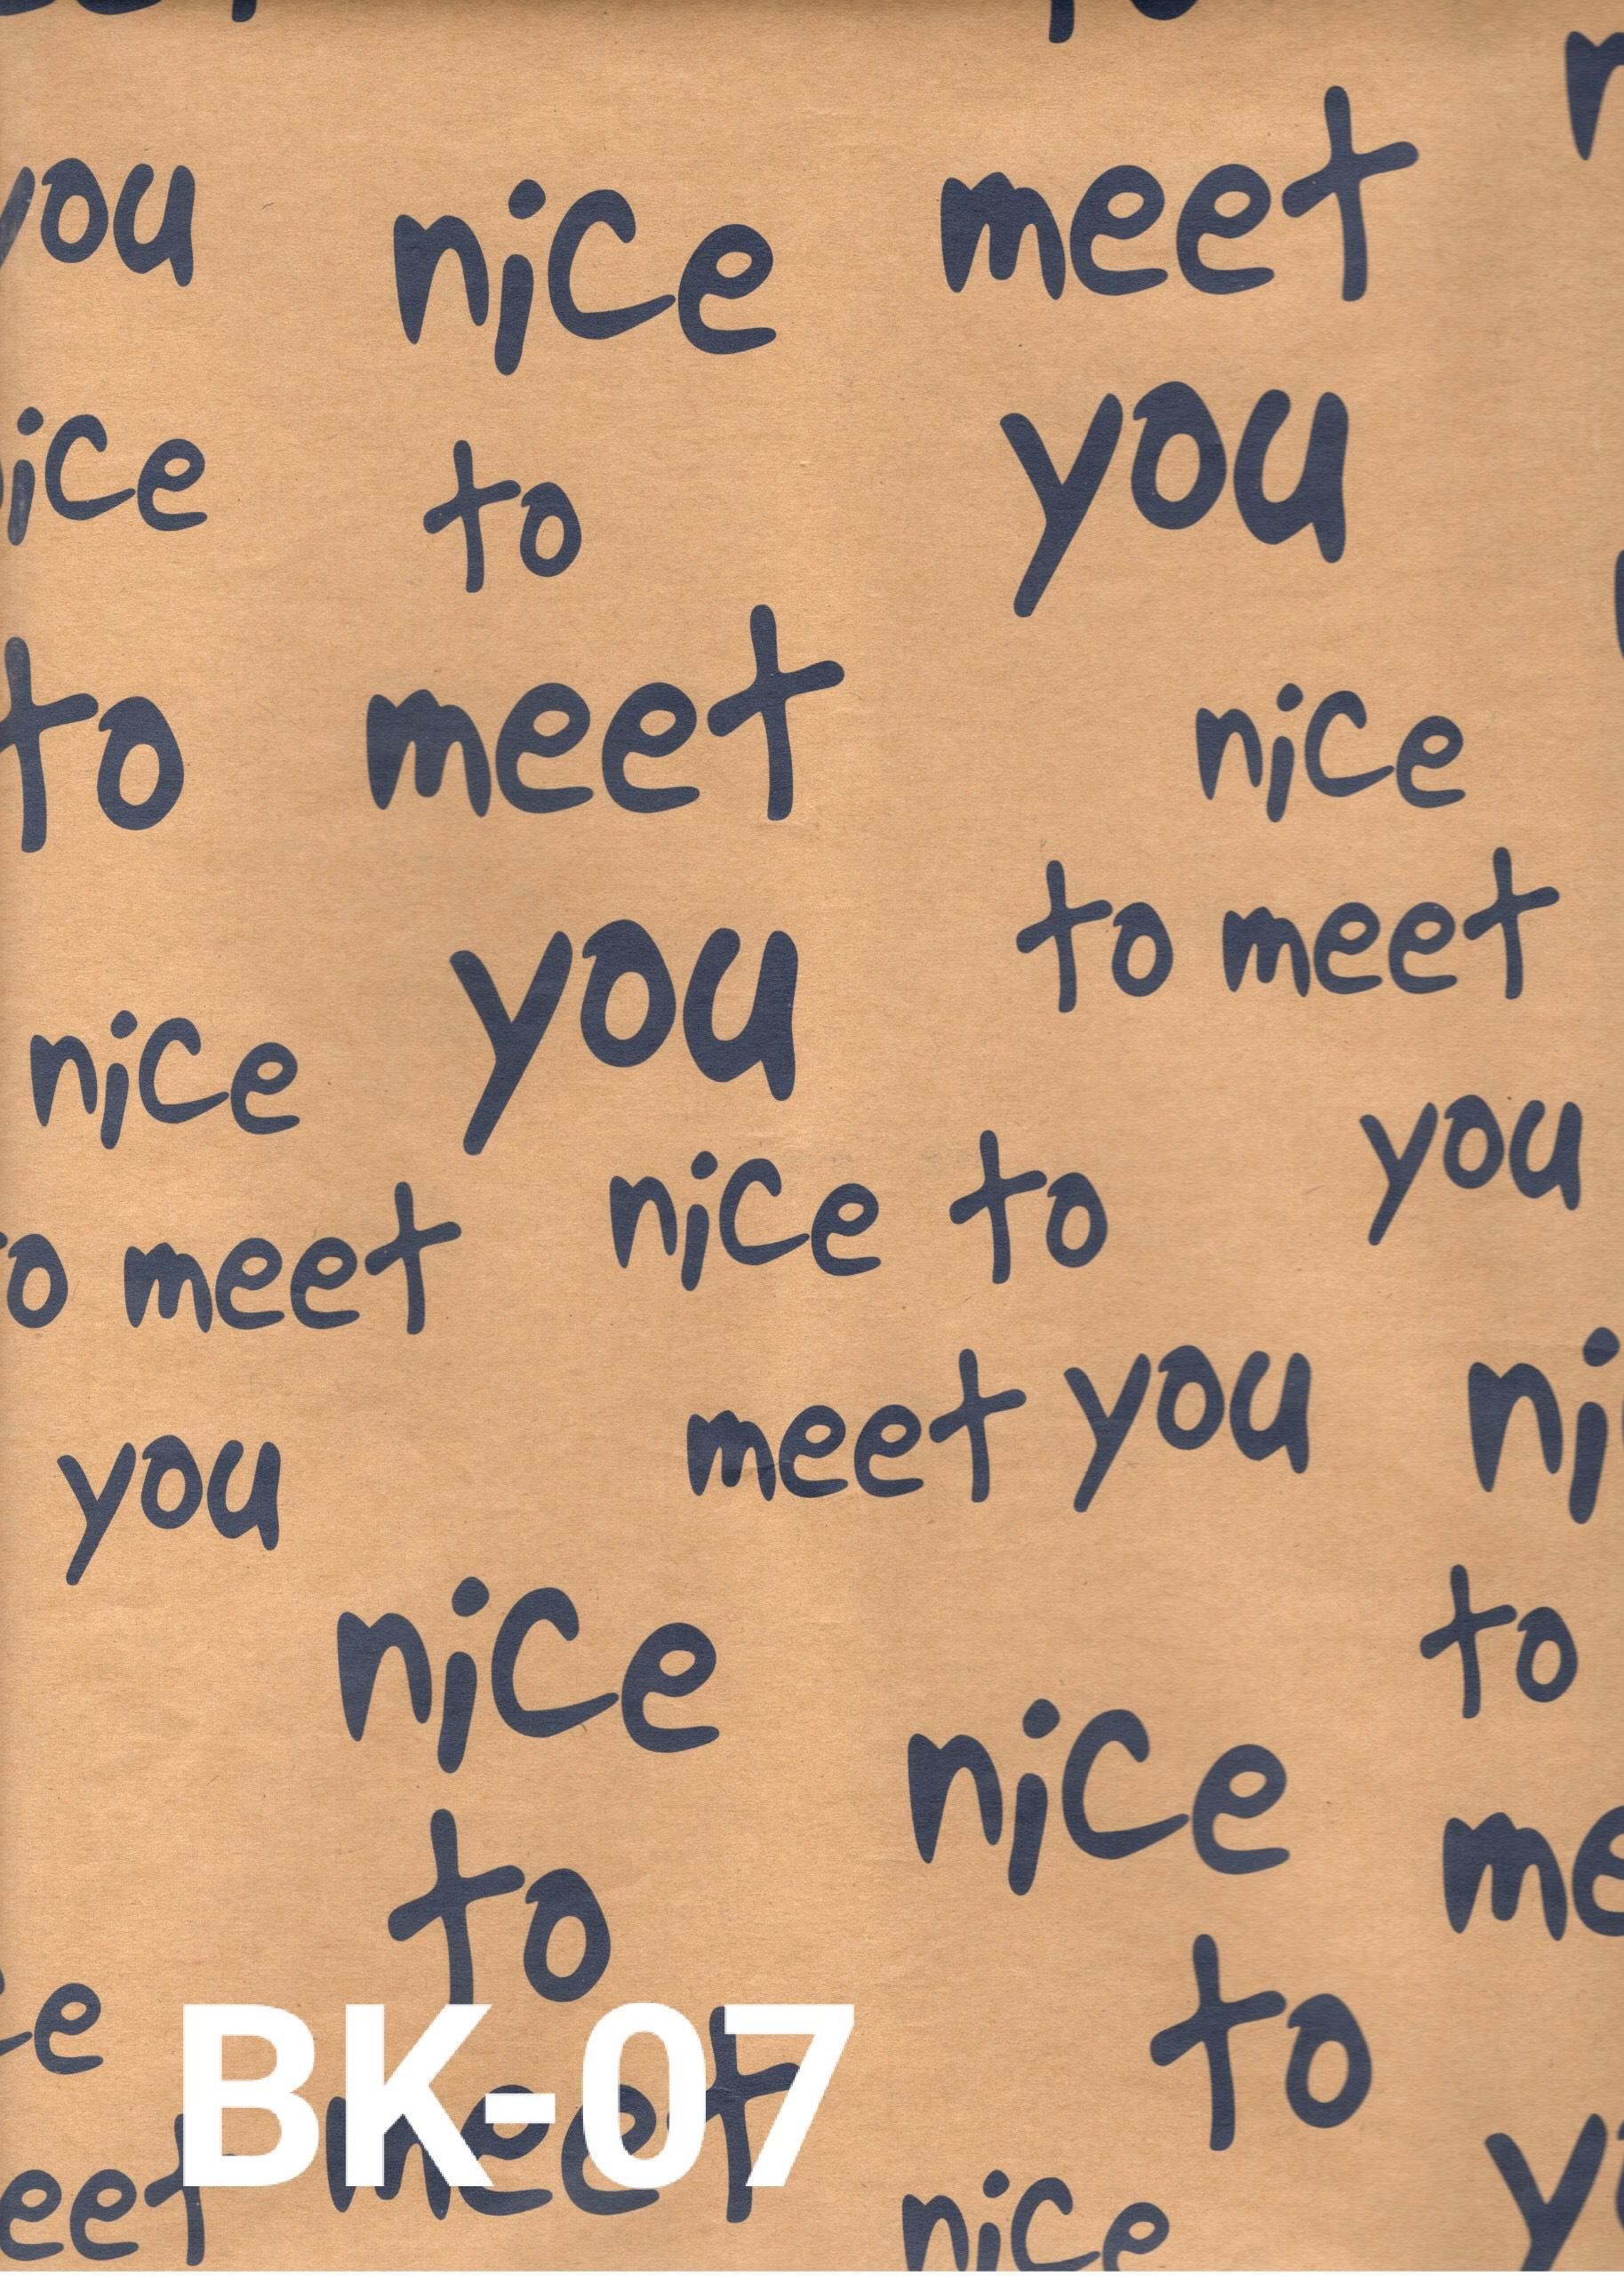 you
nice
meet
to
you
nice
to
meet
nice
to meet
you
nice
you
nice to
meet
meet you
you
to
nice
nice
to
to
meet
BK-07
nice